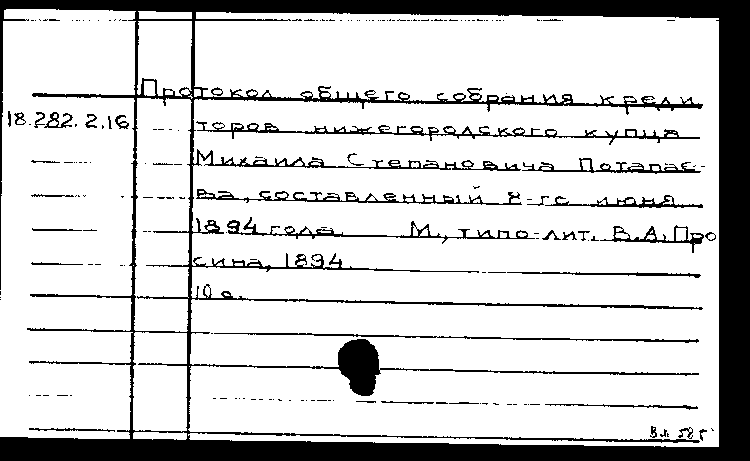 Протокол общего собрания креди
18.282.2.16 торов нижегородского купца
Михаила Степановича Потапае-
ва, составленный 8-го июня
1894 года. М., типо-лит. В.А. Про
сина, 1894.
10 с.